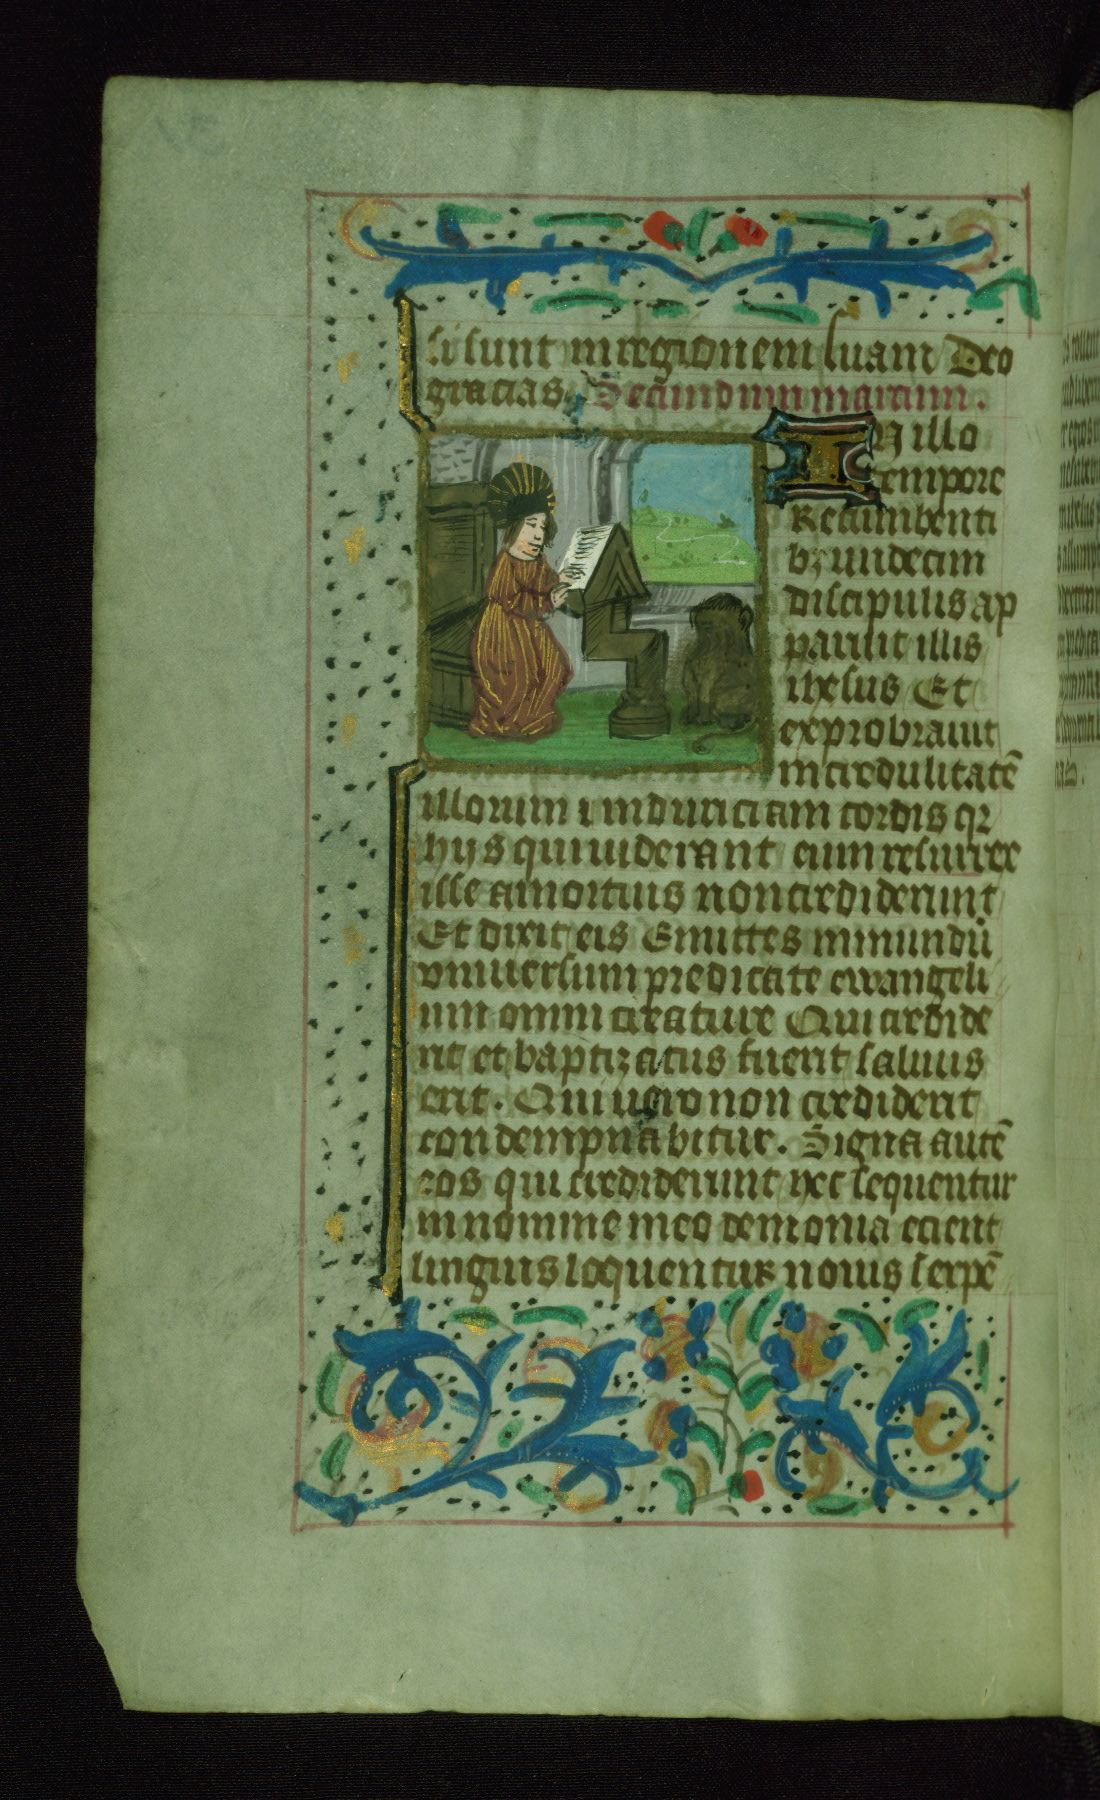 si sunt in regionem suam Deo
gracias. Secundum marcum.
IN illo
tempore
Recumbenti
bz undecim
discipulis ap
paruit illis
ihesus Et
exprobrauit
incredulitatē
illorum i induriciam cordis qr
hijs qui uiderant eum resurrex
isse a mortuis non crediderunt
Et dixit eis Euntes in mundū
vniuersum predicate ewangeli
um omni creature Qui credide
rit et baptizatus fuerit saluus
erit. Qui uero non crediderit
condempnabitur. Signa autē
eos qui crediderunt hec sequentur
in nomine meo demonia eicient
linguis loquentur nouis serpē